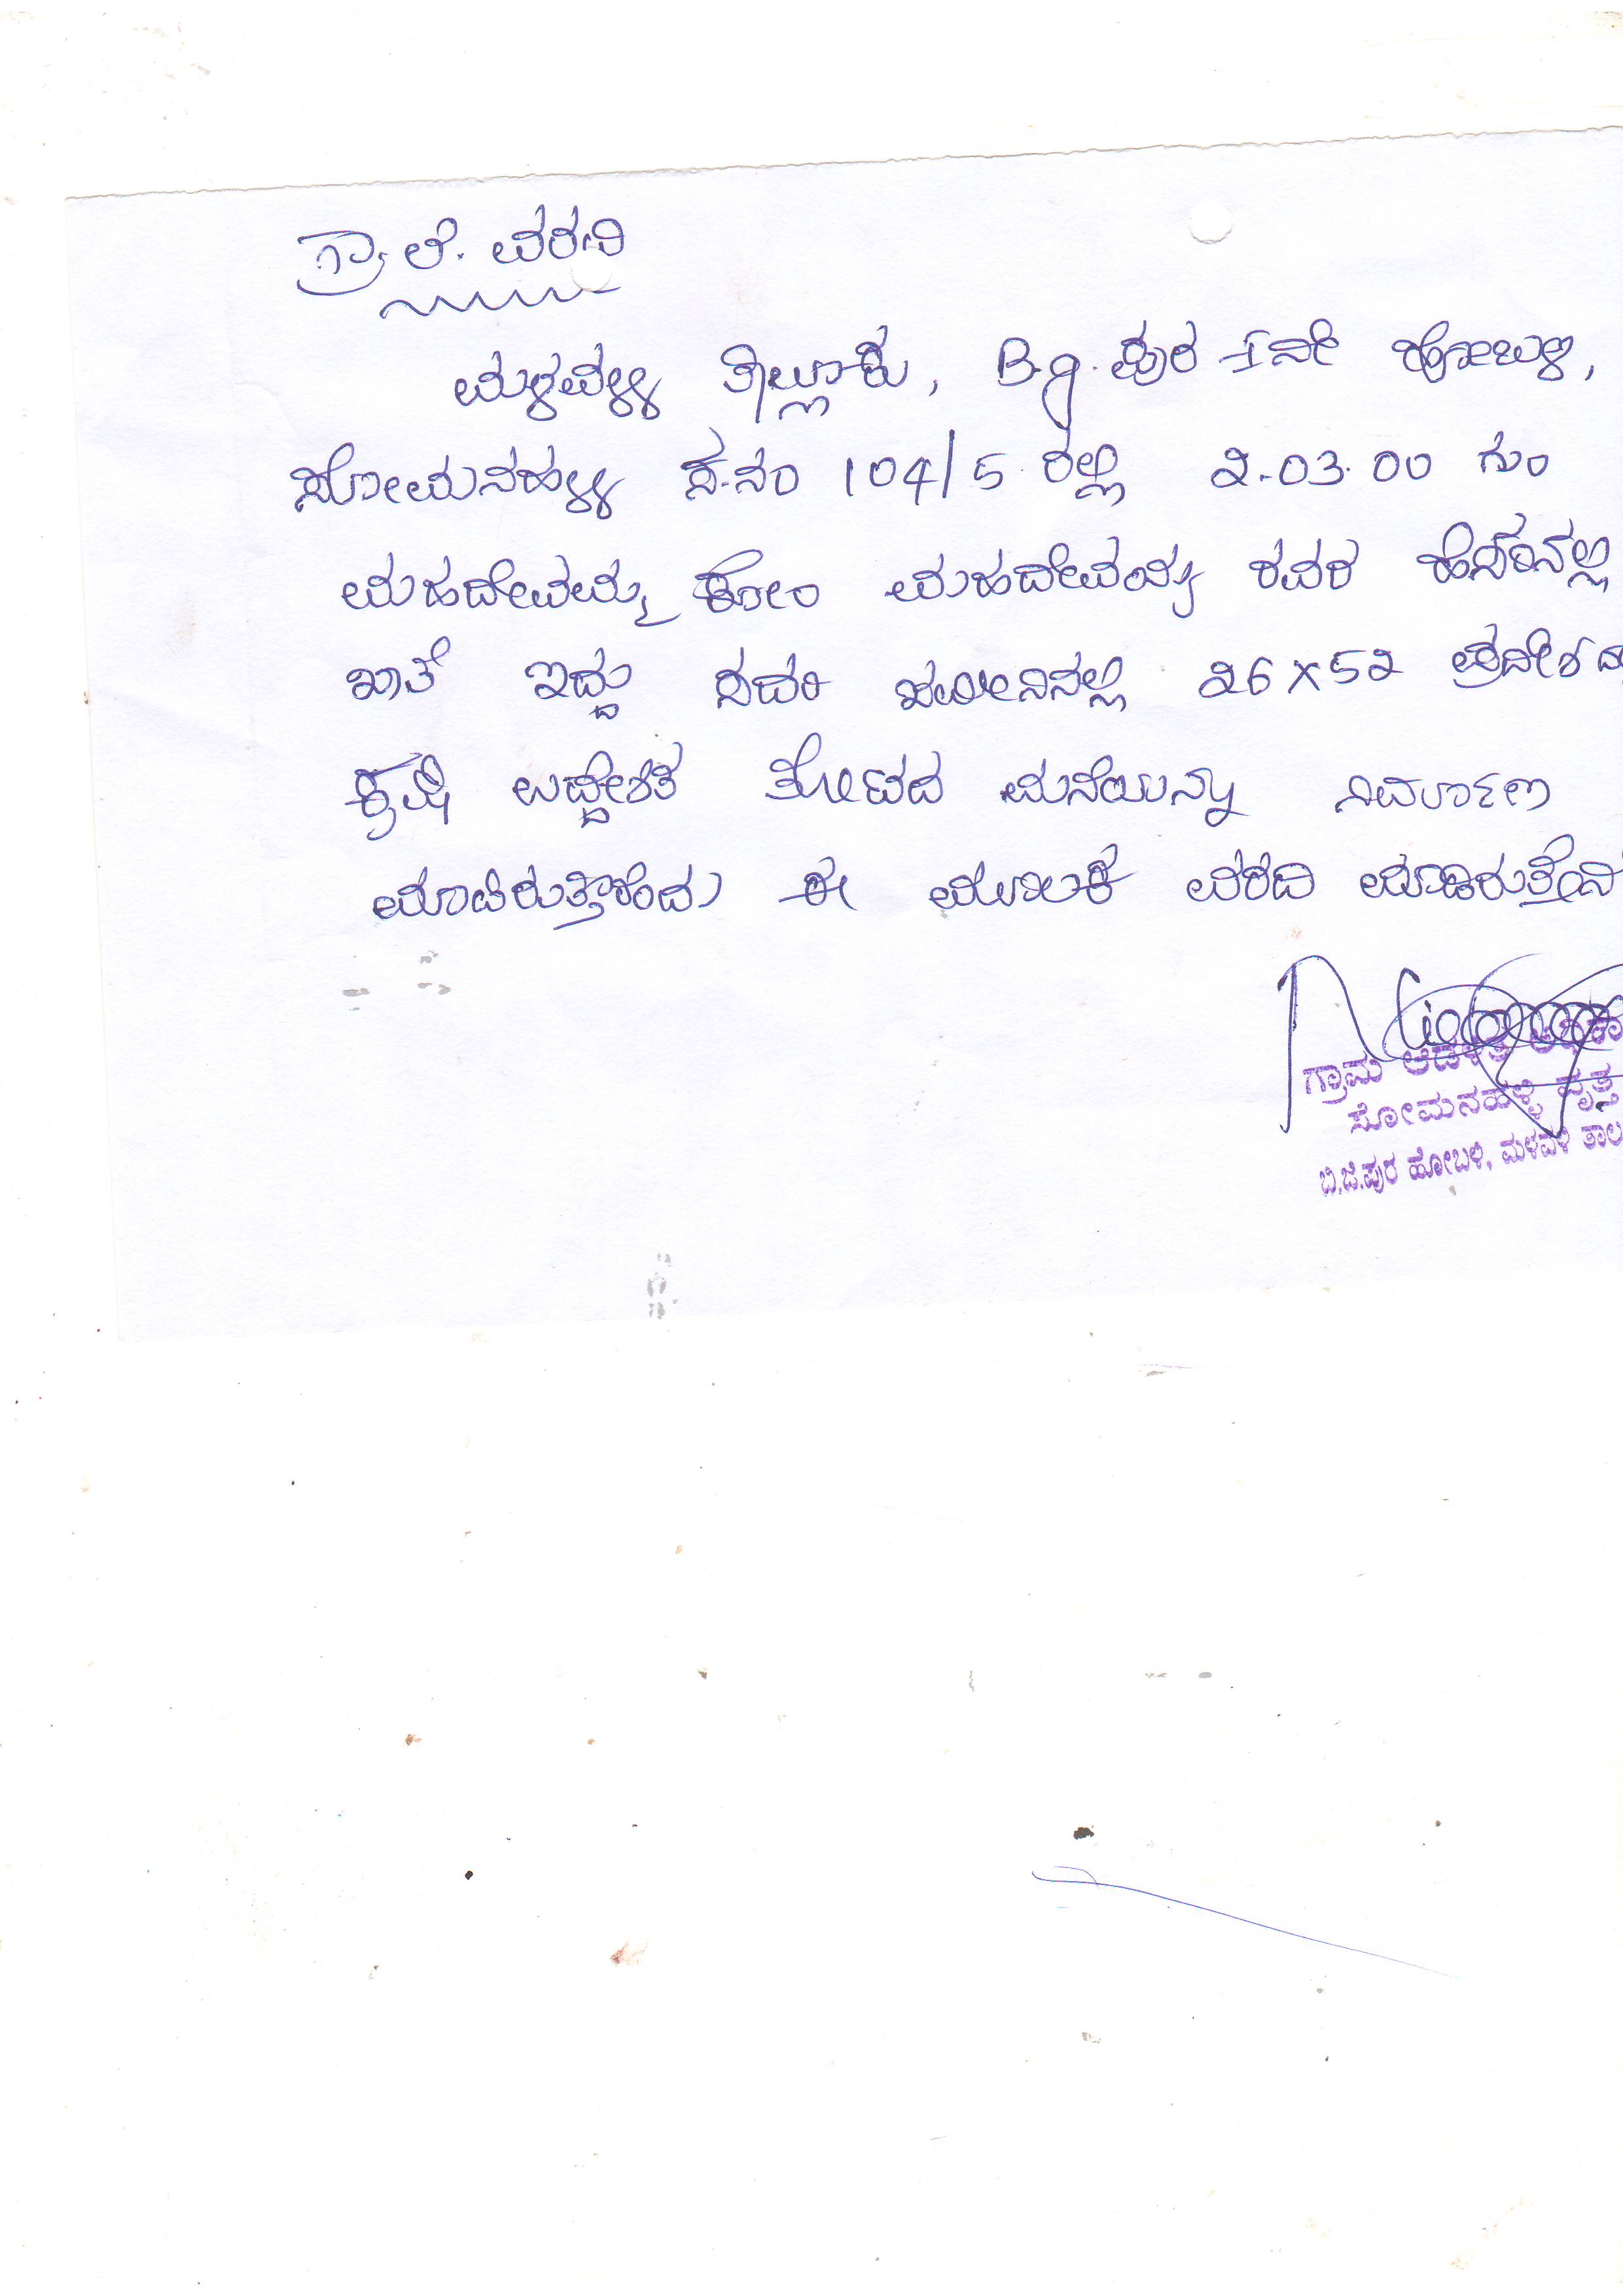 ಗ್ರಾ.ಲೆ. ವರದಿ
ಮಳವಳ್ಳಿ ತಾಲ್ಲೂಕು, B.g. ಪುರ 1ನೇ ಹೋಬಳಿ,
ಸೋಮನಹಳ್ಳಿ ಸ.ನಂ 104/5 ರಲ್ಲಿ 2-03.00 ಗುಂ
ಮಹದೇವಮ್ಮ ಕೋಂ ಮಹದೇವಯ್ಯ ರವರ ಹೆಸರಿನಲ್ಲಿ
ಖಾತೆ ಇದ್ದು ಸದರಿ ಜಮೀನಿನಲ್ಲಿ 26x52
ಕೃಷಿ ಉದ್ದೇಶಿತ ತೋಟದ ಮನೆಯನ್ನು ನಿರ್ಮಾಣ
ಮಾಡಿರುತ್ತಾರೆಂದು ಈ ಮೂಲಕ ವರದಿ ಮಾಡಿರುತ್ತೇನೆ
ಗ್ರಾಮ ಆಡಳಿತ
ಸೋಮನಹಳ್ಳಿ ವೃತ್ತ
ಬಿ.ಜಿ.ಪುರ ಹೋಬಳಿ, ಮಳವಳ್ಳಿ ತಾಲ